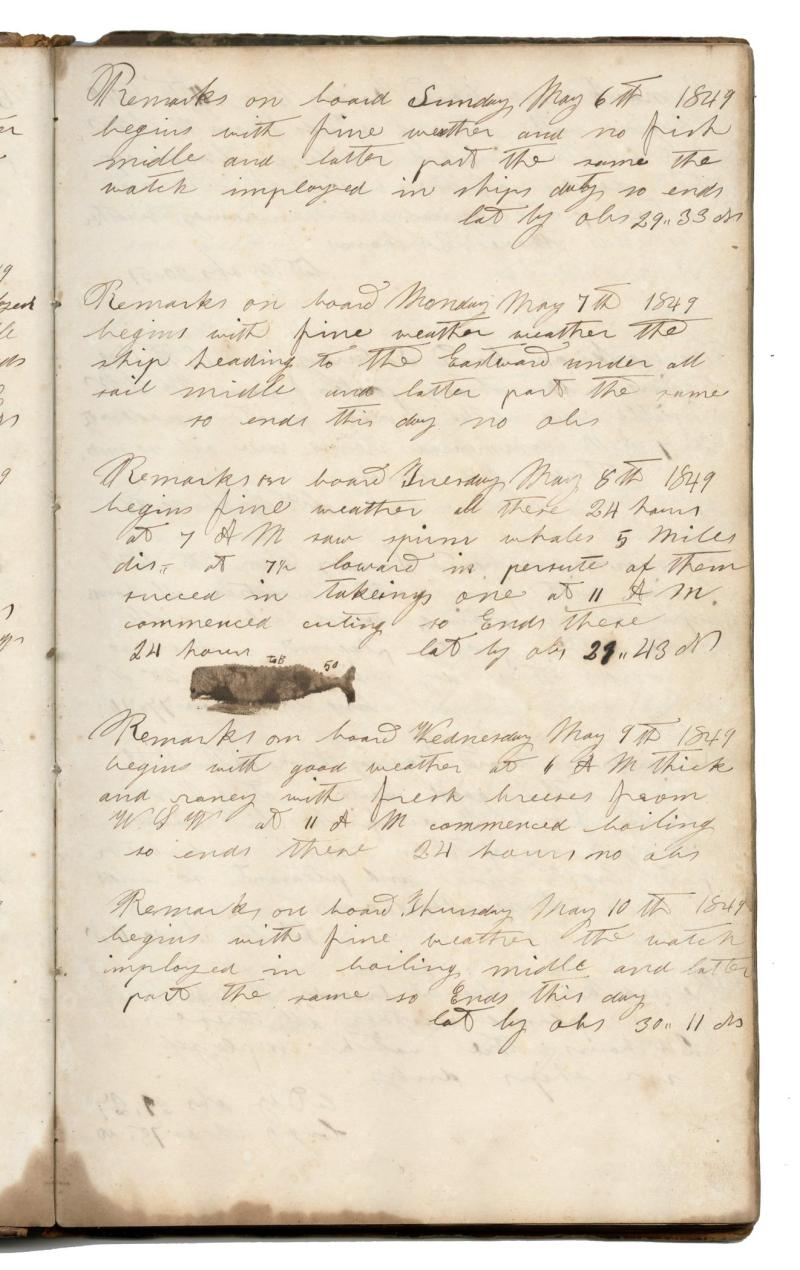 Remarks on board Sunday May 6th 1849
begins with fine weather and no fish
midle and latter part the same the
watch imployed in ships duty so ends
lat by obs 29,, 33 N
Remarks on board Monday May 7th 1849
begins with fine weather weather the
ship heading to the Eastward under all
sail midle and latter part the same
so ends this day no obs
Remarks on board Tuesday May 8th 1849
begins fine weather all these 24 hours
at 7 A M saw spirm whales 5 Miles
dis at loward in persute of them
succeed in takeing one at 11 A M
commenced cuting so Ends these
24 hours lat by obs 29,, 43 N
50
Remarks on board Wednesday May 9th 1849
begins with good weather at 6 A M thick
and raney with fresh breeses from
W S W at 11 A M commenced boiling
so ends these 24 hours no obs
Remarks on board Thursday May 10th 1849
begins with fine weather the watch
imployed in boiling midle and latter
part the same so Ends this day
lat by obs 30,, 11 N